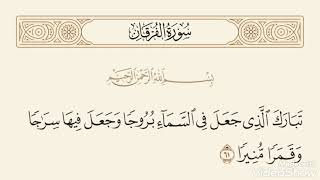 سُورَةُ الفُرْقَانِ
بِسْمِ اللَّهِ الرَّحْمَٰنِ الرَّحِيمِ
تَبَارَكَ ٱلَّذِى جَعَلَ فِى ٱلسَّمَآءِ بُرُوجًا وَجَعَلَ فِيهَا سِرَٰجًا
وَقَمَرًا مُّنِيرًا ٦١